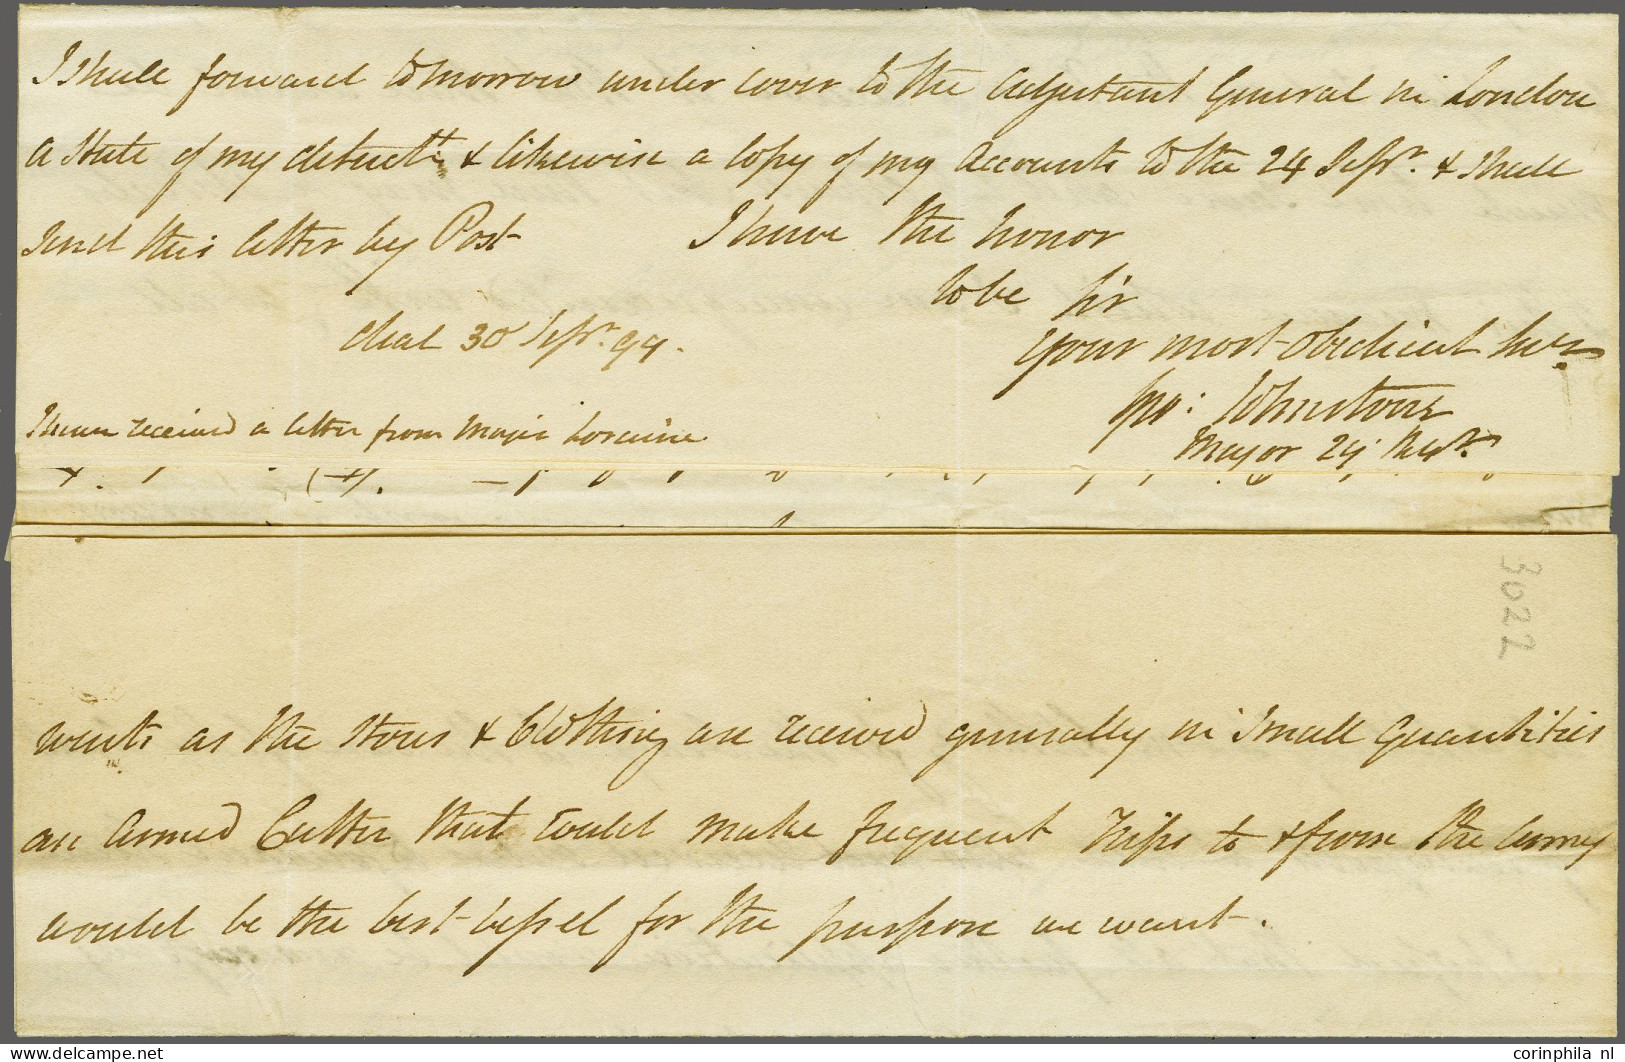 I shall forward tomorrow under cover to the Adjutant General in London
a State of my detachts & likewise a Copy of my Accounts to the 24 Sepr. & shall
send this letter by Post I have the honor
to be Sir
deal 30 Sepr. 99.
your most obedient Serv.
Jno: Johnstone
I have received a letter from Major Loraine
Major 29 Regt.
3022
wants as the Stores & Clothing are received generally in Small Quantities
an Armed Cutter that could make frequent Trips to & from the Army
would be the best Vessel for the purpose we want.
corinphila nl